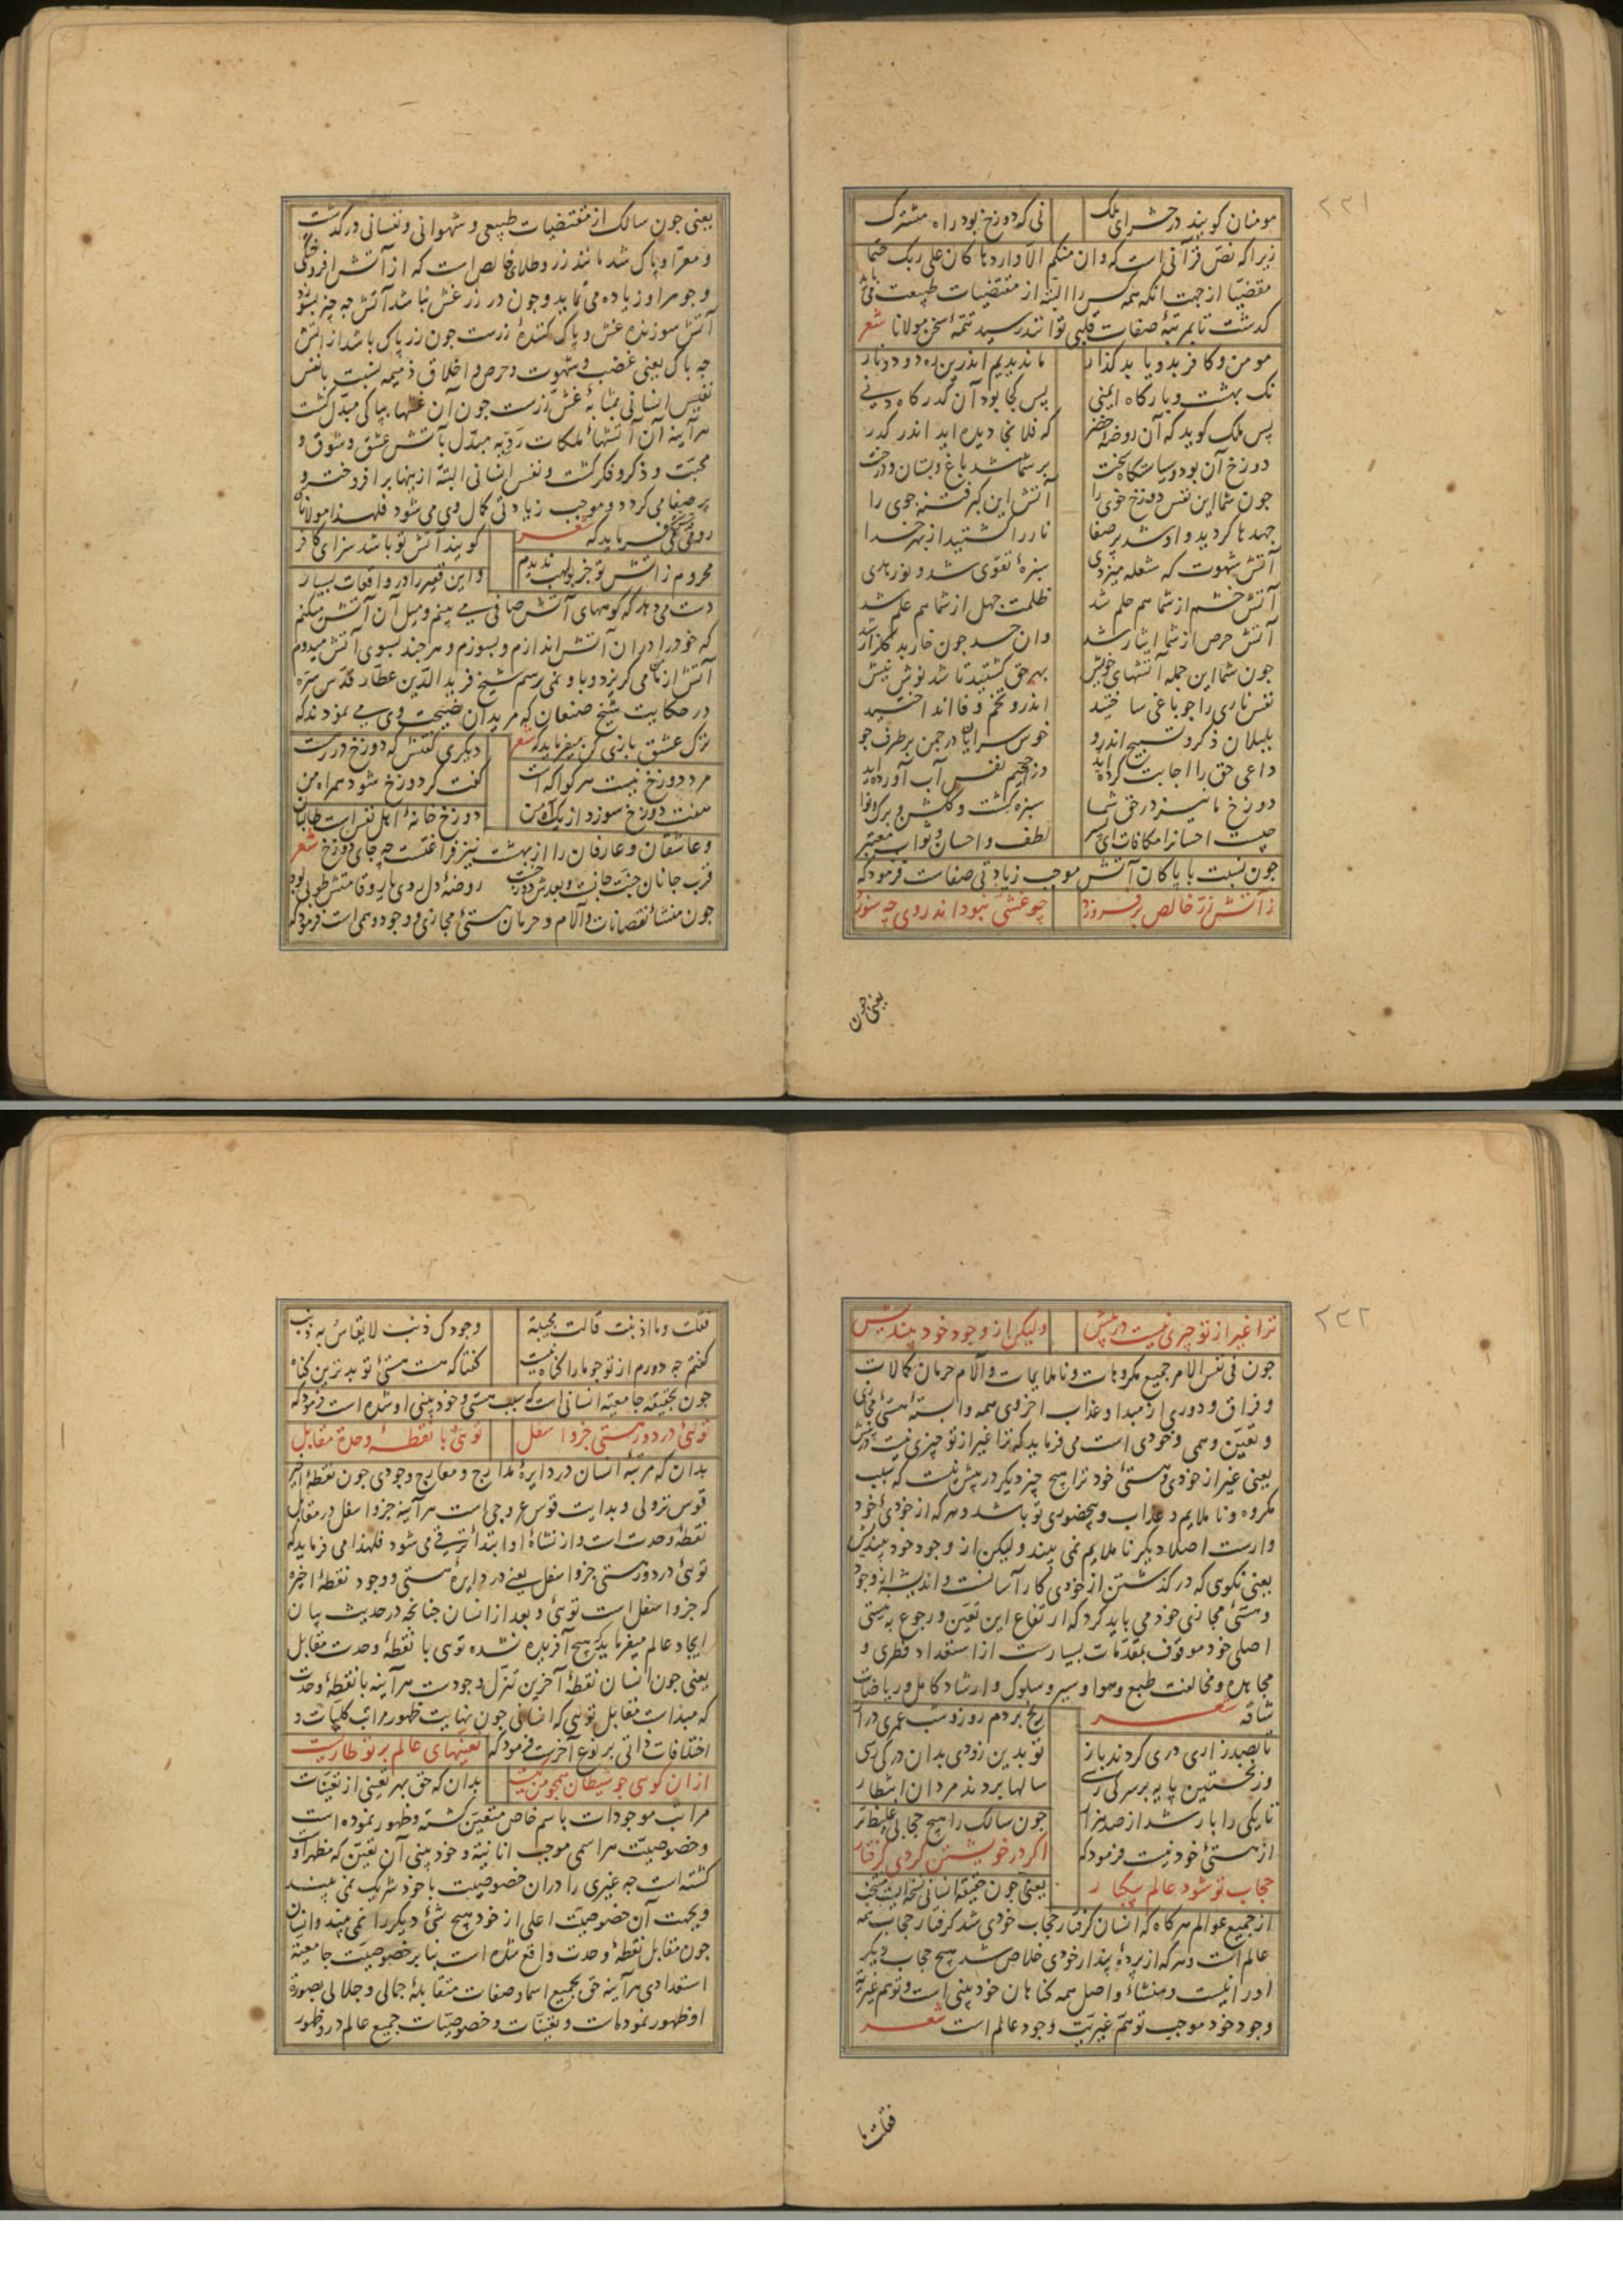 ۲۲۱
مومنان کویند در حشر ای ملک نی که دوزخ بود راه مشترک
زیرا که نص قرآنی است که وان منکم الا واردها کان علی ربک حتما
مقضیا از جهت آنکه همه کس را البته از مقتضیات طبیعت می باید
کذشت تا بمرتبهٔ صفات قلبی توانند رسید تتمهٔ سخن مولانا شعر
مومن و کافر برو یابد کذار ما ندیدیم اندرین ره دود و نار
نک بهشت و بارکاه ایمنی پس کجا بود آن کذرکاه دنی
پس ملک کوید که آن روضهٔ خضر که فلان جا دیده اید اندر کذر
دوزخ آن بود و سیاستکاه سخت بر شما شد باغ و بستان و درخت
جون شما این نفس دوزخ خوی را آتش این کبر فتنه جوی را
جهدها کردید و او شد پر صفا نار را کشتید از بهر خدا
آتش شهوت که شعله میزدی سبزهٔ تقوی شد و نور هدی
آتش خشم از شما هم حلم شد ظلمت جهل از شما هم علم شد
آتش حرص از شما ایثار شد وان حسد جون خار بد کلزار شد
جون شما این جمله آتشهای خویش بهر حق کشتید تا شد نوش نیش
نفس ناری را جو باغی ساختید اندرو تخم وفا انداختید
بلبلان ذکر و تسبیح اندرو خوش سرایان در جمن بر طرف جو
داعی حق را اجابت کرده اید در جحیم نفس آب آورده اید
دوزخ ما نیز در حق شما سبزه کشت و کلشن و برک و نوا
جیست احسانرا مکافات ای پسر لطف و احسان و ثواب معتبر
جون نسبت با پاکان آتش موجب زیادتی صفاست فرمود که
ز آتش زر خالص بر فروزد چو غشی نبود اندر وی چه سوزد
یعنی جون
یعنی جون سالک از مقتضیات طبیعی و شهوانی و نفسانی درکذشت
و معرا و پاک شد مانند زر و طلای خالص است که از آتش افروختکی
و جوهر او زیاده می نماید و جون در زر غش نباشد آتش جه جیز بسوزد
آتش سوزندهٔ غش و پاک کنندهٔ زرست جون زر پاک باشد از آتش
جه باک یعنی غضب و شهوت و حرص و اخلاق ذمیمه نسبت با نفس
نفیس انسانی بمثابهٔ غش زرست جون آن غشها بپاکی مبدل کشت
هرآینه آن آتشهای ملکات ردیه مبدل بآتش عشق و شوق و
محبت و ذکر و فکر کشت و نفس انسانی البته ازینها بر افروخت و
پر صفا می کردد و موجب زیادتی کمال وی می شود فلهذا مولانای
رومی می فرماید که شعر کویند آتش تو باشد سزای کافر
محروم ز آتش تو جز بولهب ندیدم و این فقیر را در واقعات بسیار
دست می دهد که کوههای آتش صافی می بینم و میل آن آتش میکنم
که خود را در ان آتش اندازم و بسوزم و هر جند بسوی آتش میدوم
آتش از من می کریزد و باو نمی رسم شیخ فرید الدین عطار قدس سره
در حکایت شیخ صنعان که مریدان نصیحت وی می نمودند که
ترک عشق بازی کن میفرماید که شعر دیکری کفتش که دوزخ در رهست
مرد دوزخ نیست هر کو آکهست کفت کر دوزخ شود همراه من
هفت دوزخ سوزد از یک آه من دوزخ خانهٔ اهل نفس است طالبان
و عاشقان و عارفان را از بهشت نیز فراغتست چه جای دوزخ شعر
قرب جانان جنت جانست و بعدش دوزخست روضهٔ دل روی یار و قامتش طوبی بود
جون منشاء نقصانات و آلام و حرمان هستئ مجازی و وجود وهمی است فرمود که
۲۲۲
ترا غیر از تو چیزی نیست در پیش ولیکن از وجود خود بیندیش
جون فی نفس الامر جمیع مکروهات و ناملایمات و آلام حرمان کمالات
و فراق و دوری از مبدا و عذاب اخروی همه وابستهٔ هستئ مجازی
و تعین وهمی وجودی است می فرماید که ترا غیر از تو چیزی نیست در پیش
یعنی غیر از خودی و هستئ خود ترا هیچ چیز دیکر در پیش نیست که سبب
مکروه و ناملایم و عذاب و بیحضوری تو باشد و هر که از خودئ خود
وارست اصلا دیکر ناملایم نمی بیند ولیکن از وجود خود بیندیش
یعنی نکوی که در کذشتن از خودی کار آسانست و اندیشه از وجود
و هستئ مجازی خود می باید کرد که ارتفاع این تعین و رجوع به نیستی
اصلی خود موقوف بمقدمات بسیارست از استعداد فطری و
مجاهده و مخالفت طبع و هوا و سیر و سلوک و ارشاد کامل و ریاضات
شاقه شعر رنج بردم روز و شب عمری دراز
تا بصد زاری دری کردند باز تو بدین زودی بدان در کی رسی
وز نخستین پایه بر سر کی رسی سالها بردند مردان انتظار
تا یکی را بار شد از صد هزار جون سالک را هیچ حجابی غلیظتر
از هستئ خود نیست فرمود که اکر در خویشتن کردی کرفتار
حجاب تو شود عالم بیکبار یعنی جون حقیقهٔ انسانی نسخه ایست منتخب
از جمیع عوالم هر کاه که انسان کرفتار حجاب خودی شد کرفتار حجاب همه
عالم است و هر که از پردهٔ پندار خودی خلاص شد هیچ حجاب دیکر
او را نیست و منشاء و اصل همه کناهان خود بینی است و توهم غیریة
وجود خود موجب توهم غیریت وجود عالم است شعر
فقلت ما
فقلت وما اذنبت قالت مجیبة وجودک ذنب لا یقاس به ذنب
کفتم چه دورم از تو جو ما را کناه نیست کفتا که هست هستئ تو بدترین کناه
جون بحقیقه جامعیة انسانی است که سبب هستی و خود بینی او شده است فرمود که
توئی در دور هستی جزو اسفل توئی با نقطهٔ وحدة مقابل
بدان که مرتبهٔ انسان در دایرهٔ مدارج و معارج وجودی جون نقطهٔ اخیر
قوس نزولی و بدایت قوس عروجی است هرآینه جزو اسفل در مقابل
نقطهٔ وحدت است و از نشاة او ابتداء ترقی می شود فلهذا می فرماید که
توئی در دور هستی جزو اسفل یعنی در دایرهٔ هستی و وجود نقطهٔ اخیره
که جزو اسفل است توئی و بعد از انسان جنانچه در حدیث بیان
ایجاد عالم میفرماید که هیچ آفریده نشده توی با نقطهٔ وحدت مقابل
یعنی جون انسان نقطهٔ آخرین تنزل وجودست هرآینه با نقطهٔ وحدت
که مبداست مقابل توئی که انسانی جون نهایت ظهور مراتب کلیات و
اختلافات ذاتی بر نوع آخرست فرمود که تعینهای عالم بر تو طاریست
از ان کوئی جو شیطان همجو من کیست بدان که حق بهر تعینی از تعینات
مراتب موجودات باسم خاص متعین کشته و ظهور نموده است
و خصوصیت هر اسمی موجب انانیة و خود بینی آن تعین که مظهر او
کشته است جه غیری را در ان خصوصیت با خود شریک نمی بیند
و بجهت آن خصوصیت اعلی از خود هیچ شئ دیکر را نمی بیند و انسان
جون مقابل نقطهٔ وحدت واقع شده است بنابر خصوصیت جامعیة
استعدادی هرآینه حق بجمیع اسما و صفات متقابلهٔ جمالی و جلالی بصورة
او ظهور نموده است و تعینات و خصوصیات جمیع عالم در و ظهور